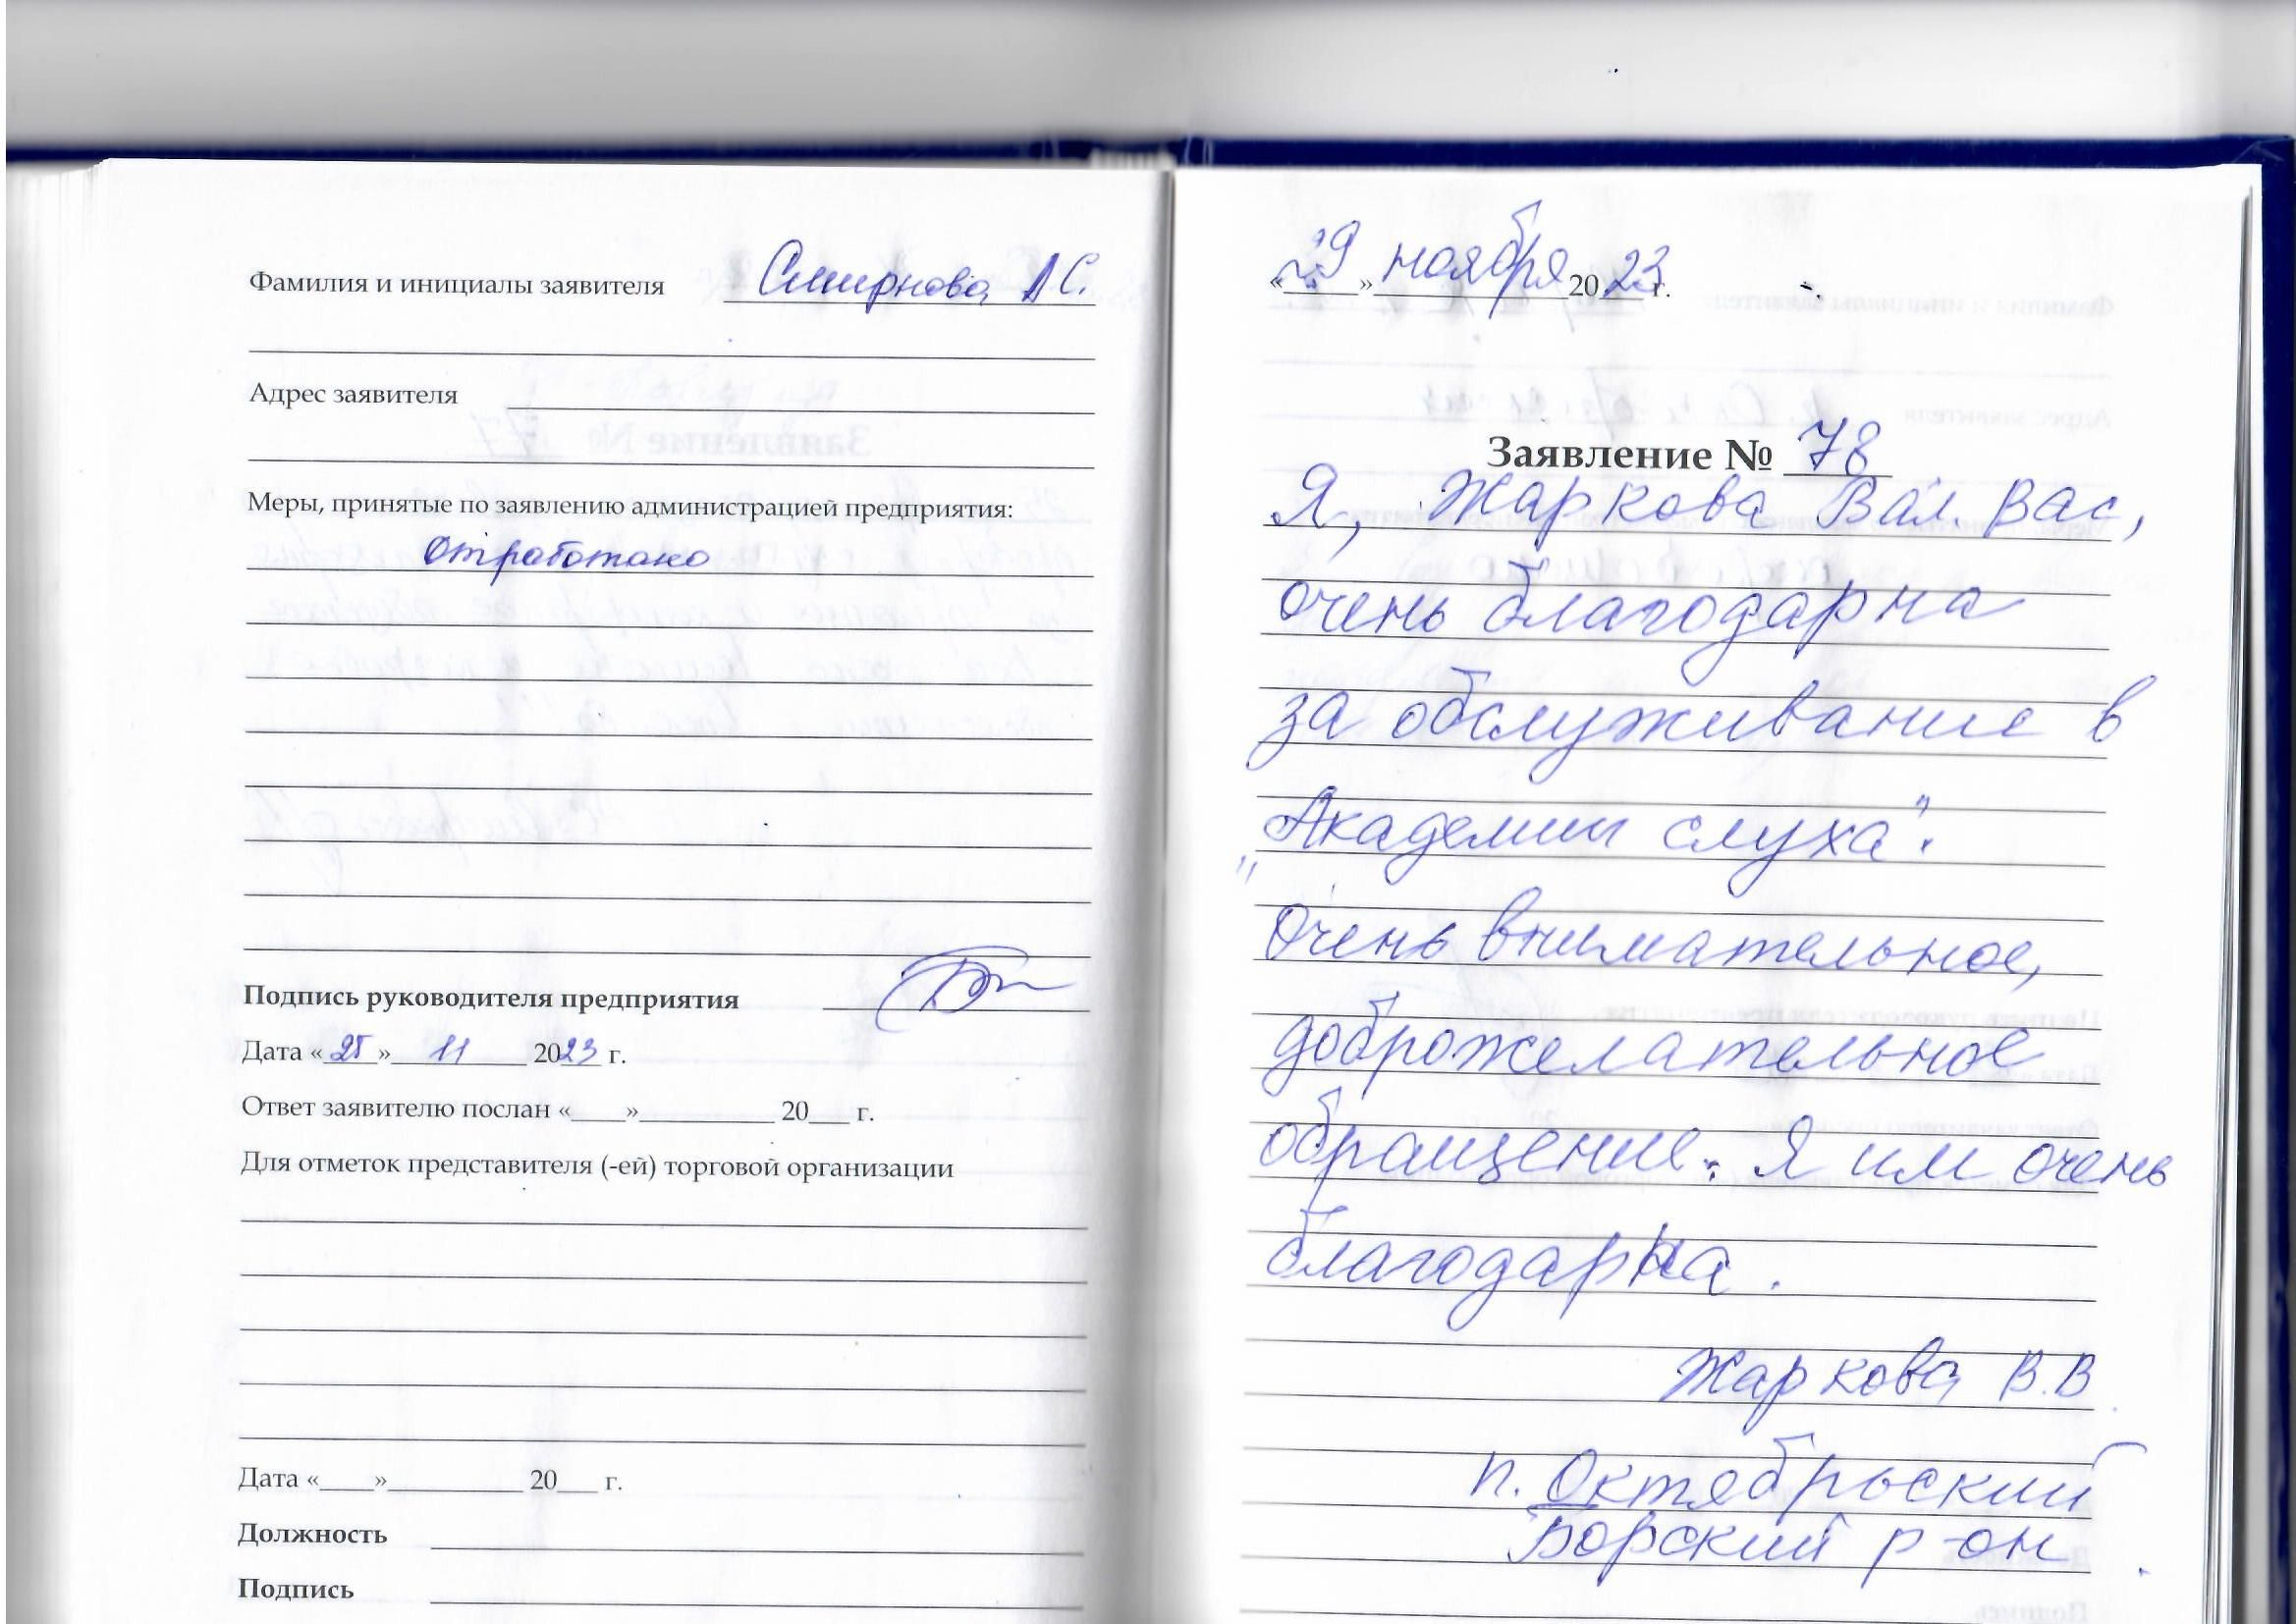 Фамилия и инициалы заявителя Смирнова А С.
Адрес заявителя
Меры, принятые по заявлению администрацией предприятия:
отработано
Подпись руководителя предприятия
Дата «25» 11 2023 г.
Ответ заявителю послан «____»__________ 20___ г.
Для отметок представителя (-ей) торговой организации
Дата «____»__________ 20___ г.
Должность
Подпись
«29» ноября 2023 г.
Заявление № 78
Я, Жаркова Вал. Вас,
очень благодарна
за обслуживание в
„Академии слуха".
Очень внимательное,
доброжелательное
обращение. Я им очень
благодарна.
Жаркова В.В
п. Октябрьский
Борский р-он.